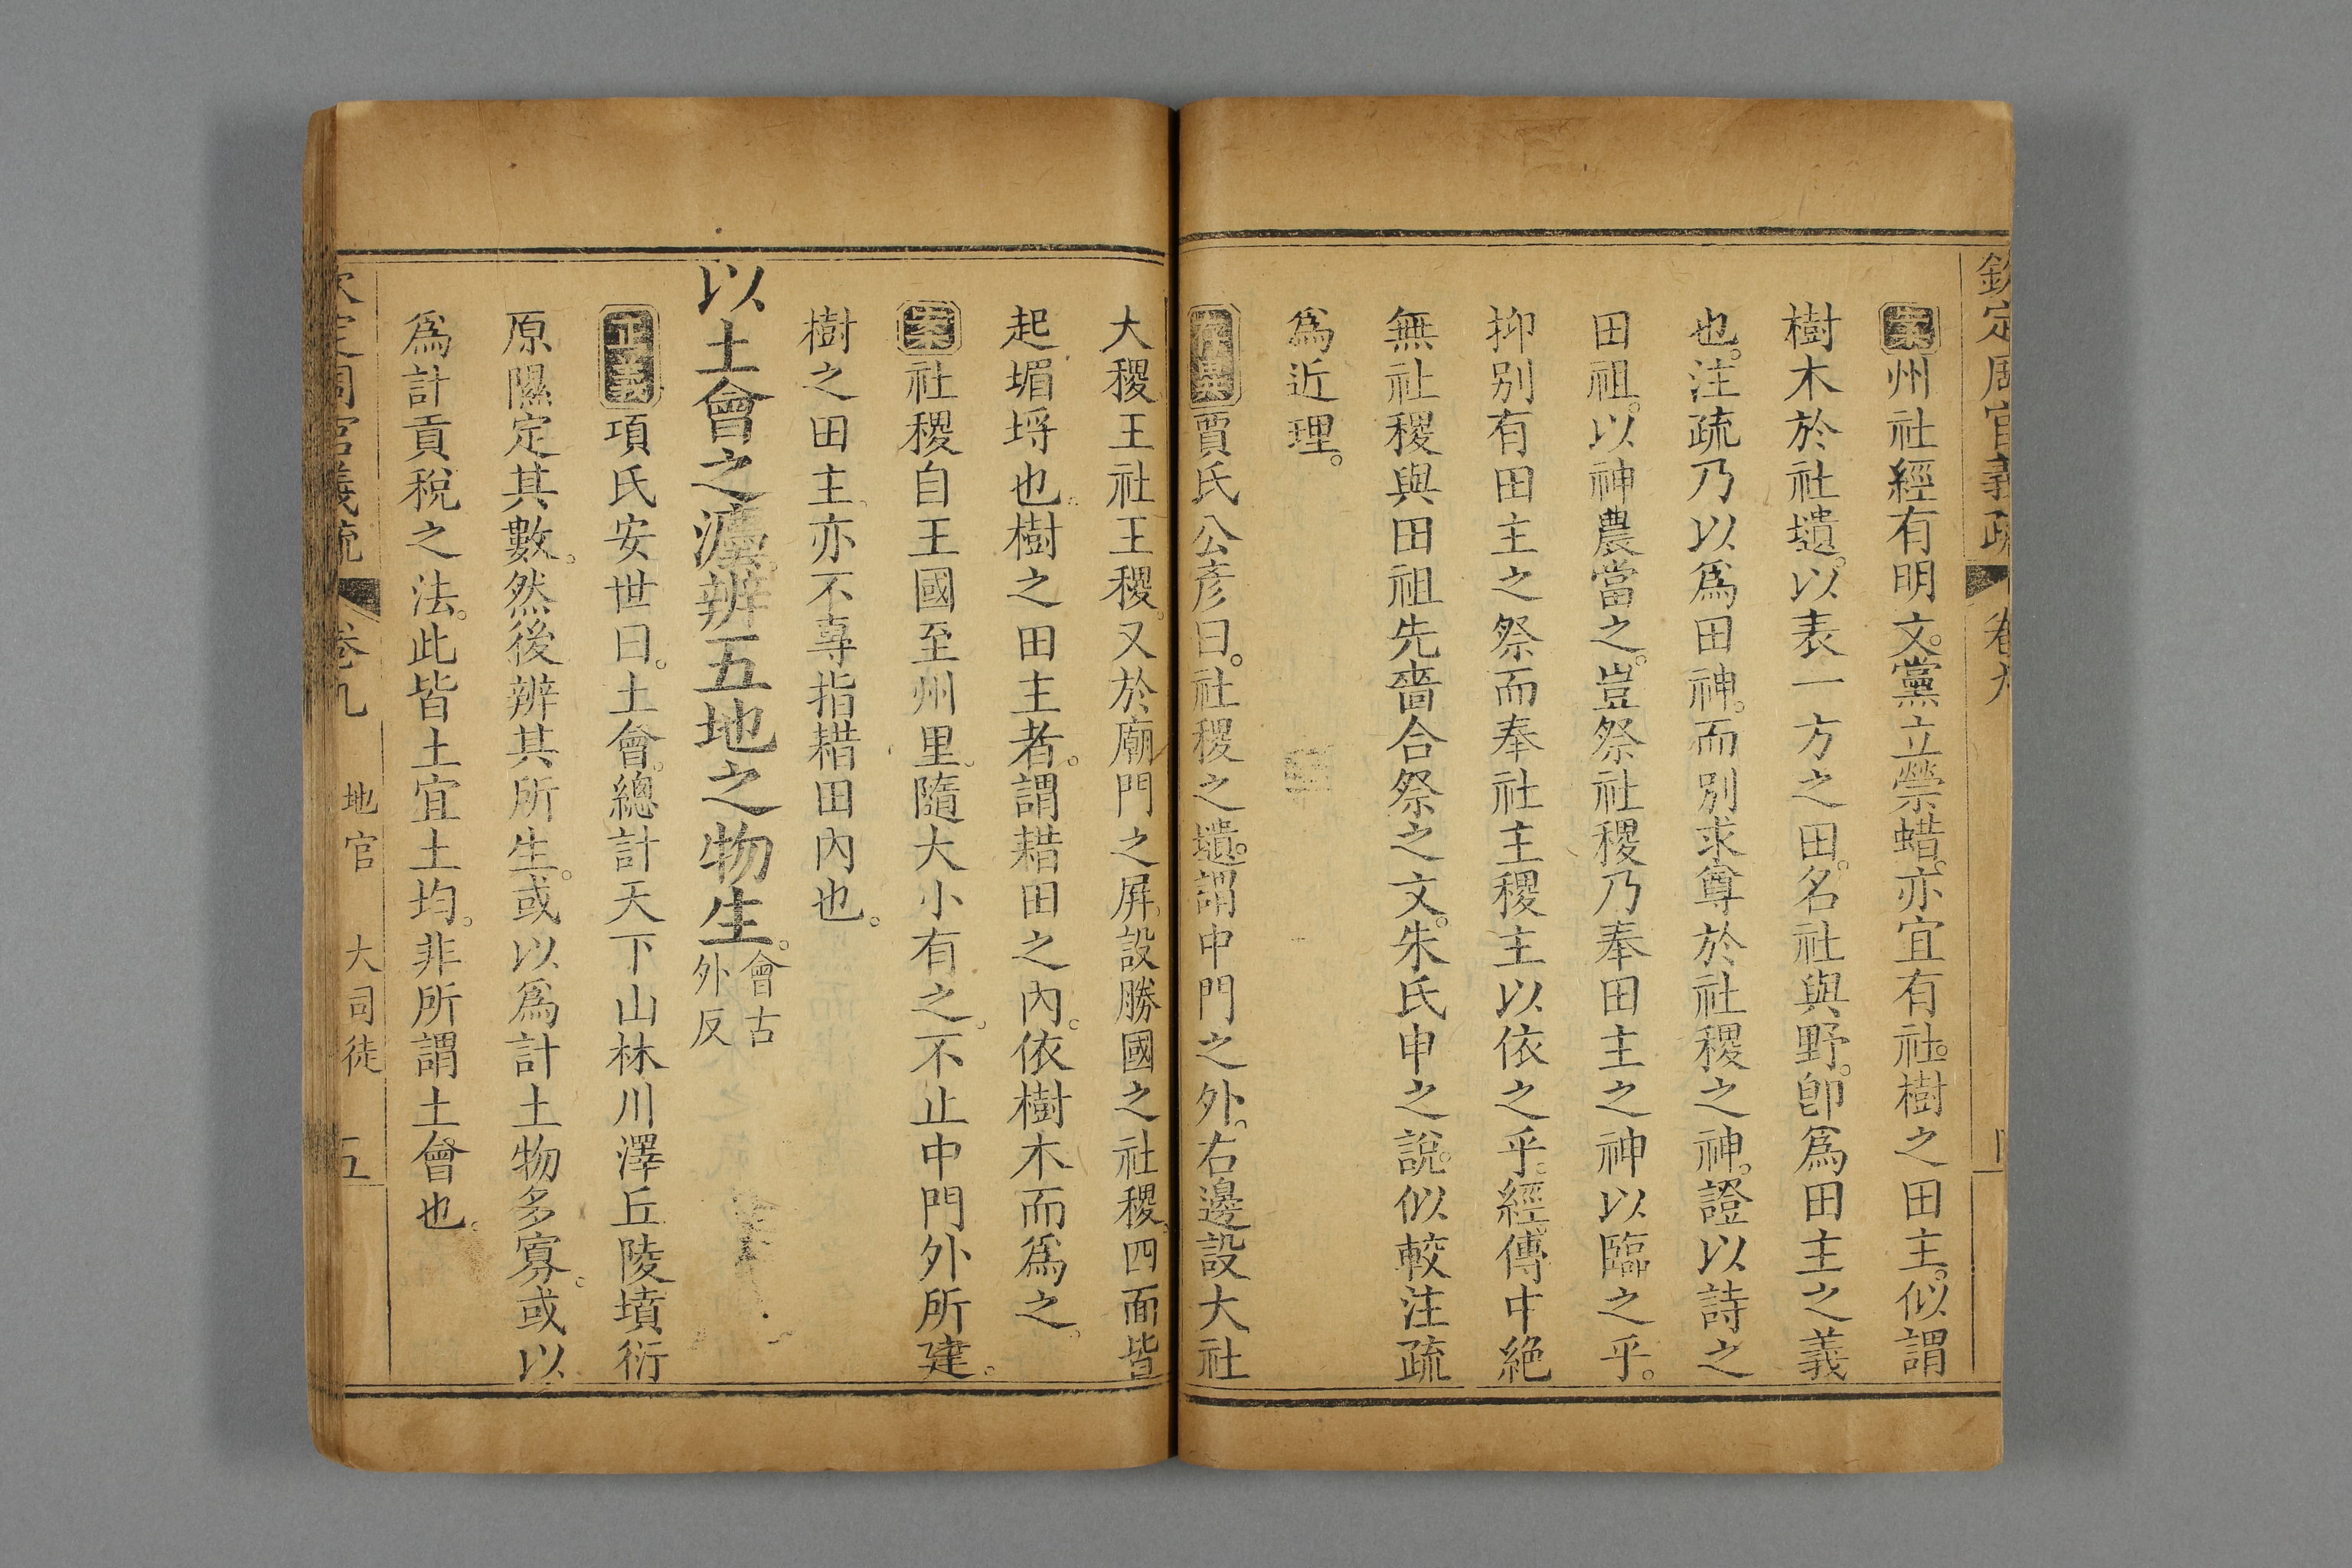 欽定周官義疏 卷九
案州社經有明文。黨立禜蜡。亦宜有社。樹之田主。似謂
樹木於社壝。以表一方之田。名社與野。卽爲田主之義
也。注疏乃以爲田神。而別求尊於社稷之神。證以詩之
田祖。以神農當之。豈祭社稷乃奉田主之神以臨之乎。
抑別有田主之祭而奉社主稷主以依之乎。經傳中絶
無社稷與田祖先嗇合祭之文。朱氏申之說。似較注疏
爲近理。
存異賈氏公彥曰。社稷之壝。謂中門之外。右邊設大社
大稷王社王稷。又於廟門之屏。設勝國之社稷。四面皆
起堳埒也。樹之田主者。謂耤田之內。依樹木而爲之。
案社稷自王國至州里。隨大小有之。不止中門外所建。
樹之田主。亦不專指耤田內也。
以土會之灋。辨五地之物生。會古外反
正義項氏安世曰。土會。總計天下山林川澤丘陵墳衍
原隰定其數。然後辨其所生。或以爲計土物多寡。或以
爲計貢稅之法。此皆土宜土均。非所謂土會也。
欽定周官義疏 卷九 地官 大司徒 五